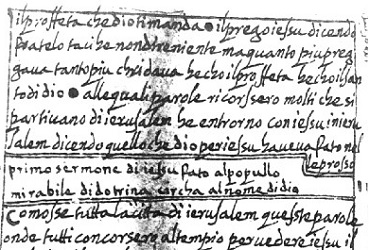 il proffeta che dio ti manda il prego iessu dicendo
fratelo taci he non dir niente ma quanto piu preg
gava tanto piu chridava hecho il proffeta hecho il san
to di dio alle quali parole ricorssero molti che si
partivano di ierusalem he entrorno con iessu in ieru
salem dicendo quello che dio per iessu haveva fato ne
le prosso
primo sermone di iessu fato al popullo
mirabile di dotrina circha al nome di dio
Comosse tutta la cita di ierusalem queste parole
onde tutti concorsero al tempio per vedere iessu il